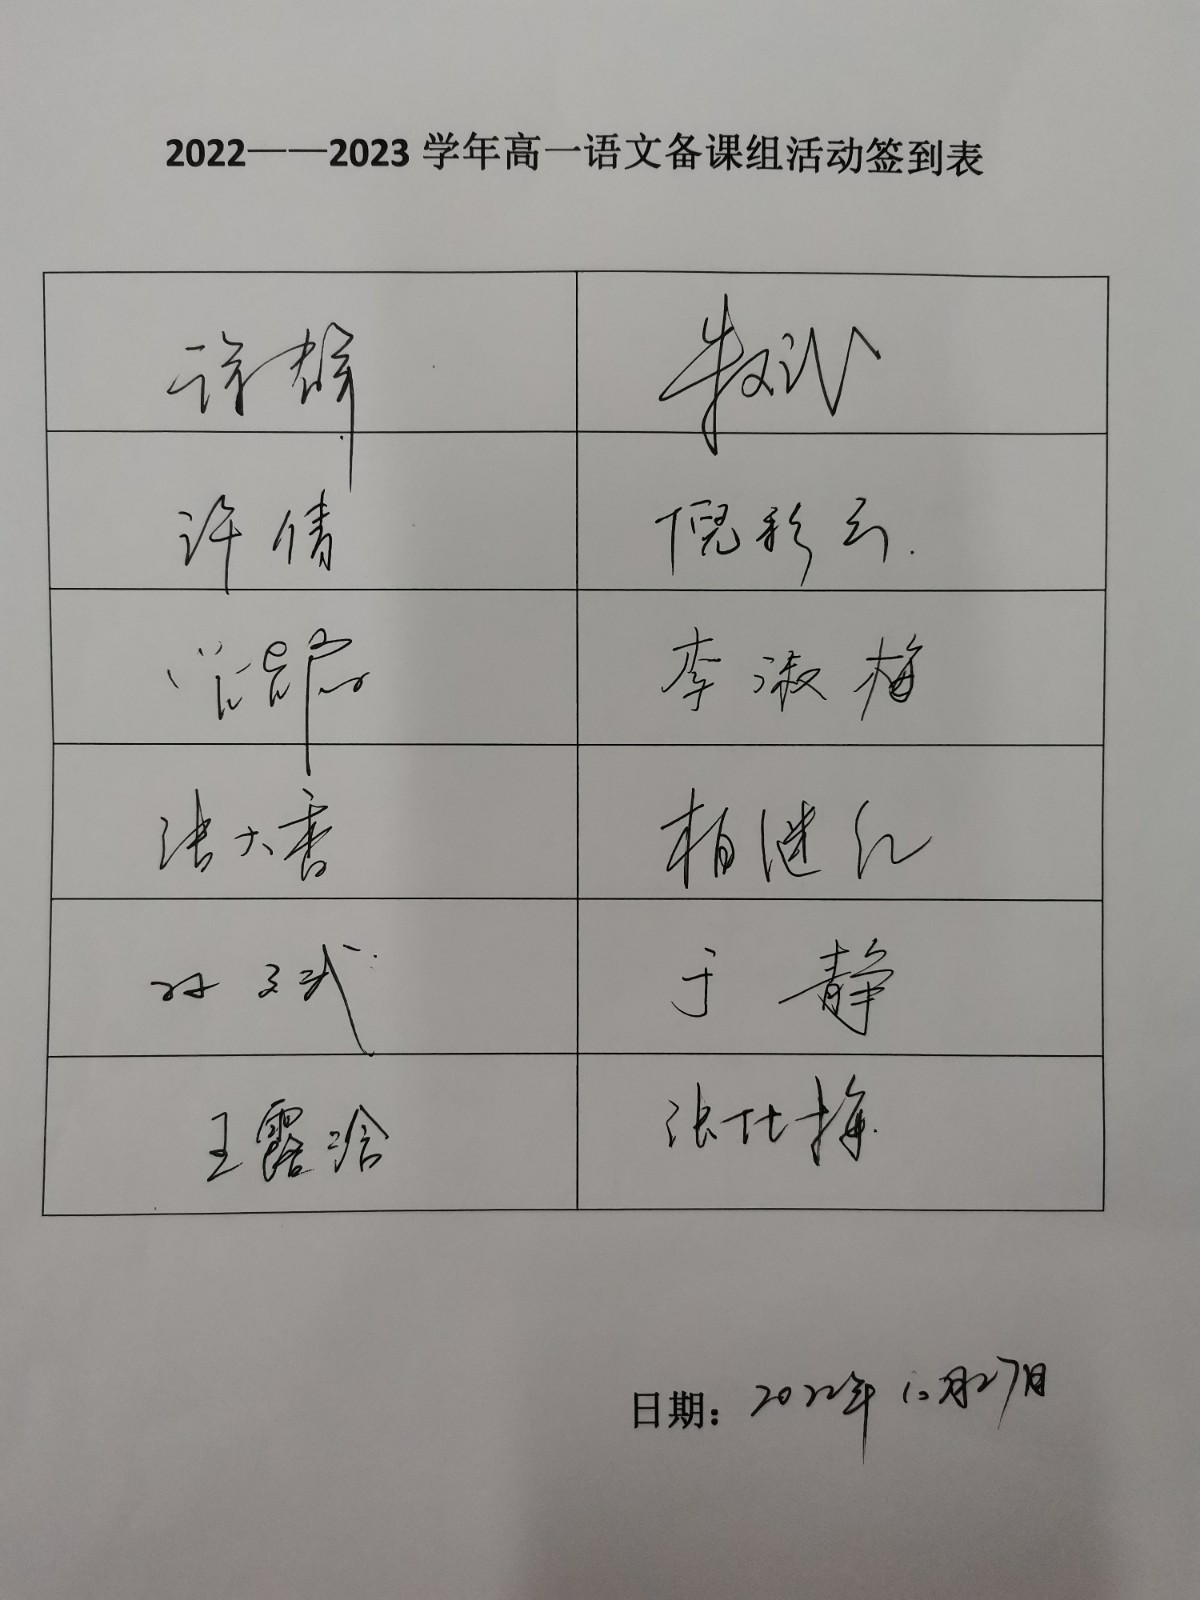 2022——2023 学年高一语文备课组活动签到表
许群
许倩 倪彩云
李淑梅
张大香 柏继红
孙文斌 于静
王露晗 张仕梅
日期：2022年10月27日